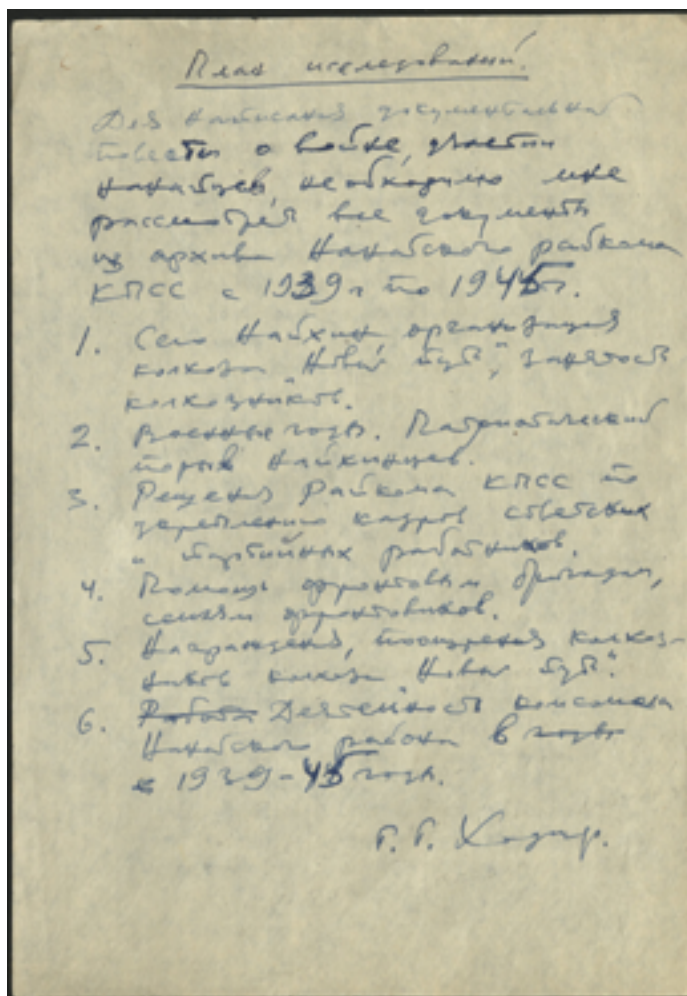 План исследований.
Для написания документальной
повести о войне, участии
нанайцев, необходимо мне
рассмотреть все документы
из архива Нанайского райкома
КПСС с 1939 г по 1945 г.
1. Село Найхин, организация
колхоза "Новый путь", занятость
колхозников.
2. Военные годы. Патриотический
порыв найхинцев.
3. Решения Райкома КПСС по
укреплению кадров советских
и партийных работников.
4. Помощь фронтовым бригадам,
семьям фронтовиков.
5. Награждения, поощрения колхоз-
ников колхоза "Новый путь".
6. Работа Деятельность комсомола
Нанайского района в годы
1939-45 годы.
Г. Г. Ходжер.